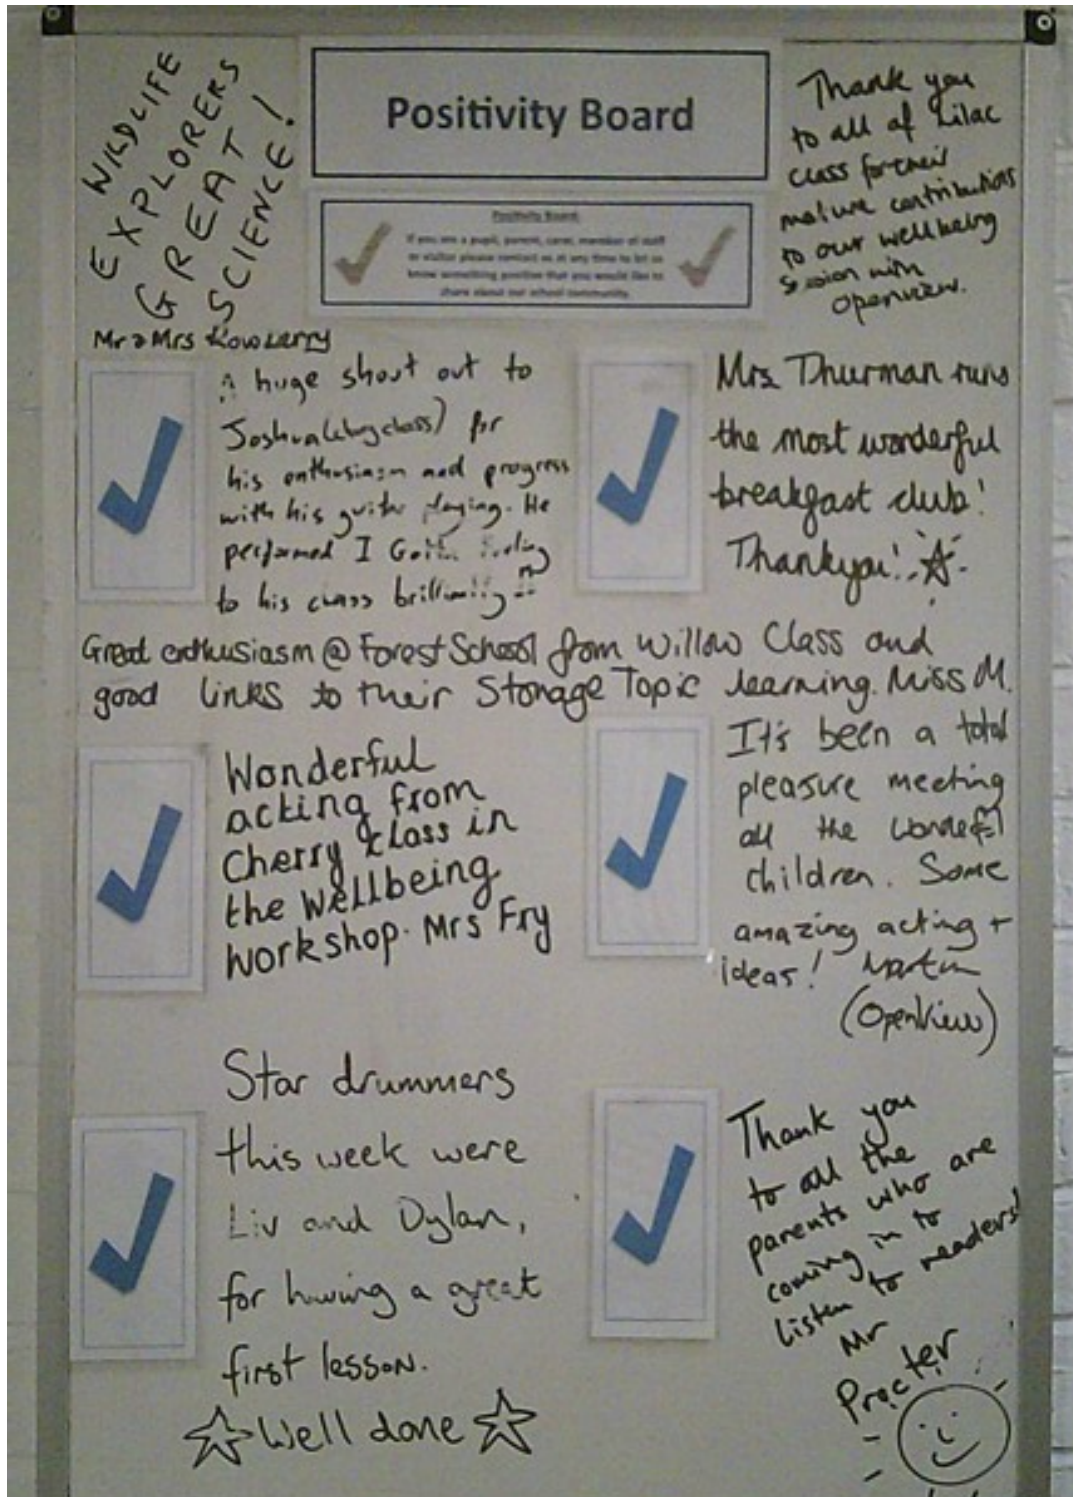 Positivity Board
Positivity Board
If you are a pupil, parent, carer, member of staff
or visitor please contact us at any time to let us
know something positive that you would like to
share about our school community.
WILDLIFE
EXPLORERS
GREAT
SCIENCE!
Mr & Mrs
Thank you
to all of Lilac
class for their
mature contributions
to our wellbeing
session with
Openview.
A huge shout out to
Joshua class) for
his enthusiasm and progress
with his guitar playing. He
performed I Gotta Feeling
to his class brilliantly
Mrs Thurman runs
the most wonderful
breakfast club!
Thankyou!
Great enthusiasm @ Forest School from Willow Class and
good links to their Stonage Topic learning. Miss M.
Wonderful
acting from
Cherry class in
the Wellbeing
Workshop. Mrs Fry
It's been a total
pleasure meeting
all the wonderful
children. Some
amazing acting +
ideas! Martin
(OpenView)
Star drummers
this week were
Liv and Dylan,
for having a great
first lesson.
Well done
Thank you
to all the
parents who are
coming in to
listen to readers!
Mr
Procter